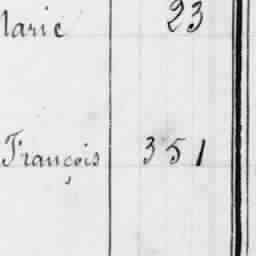 Marie 23
François 351